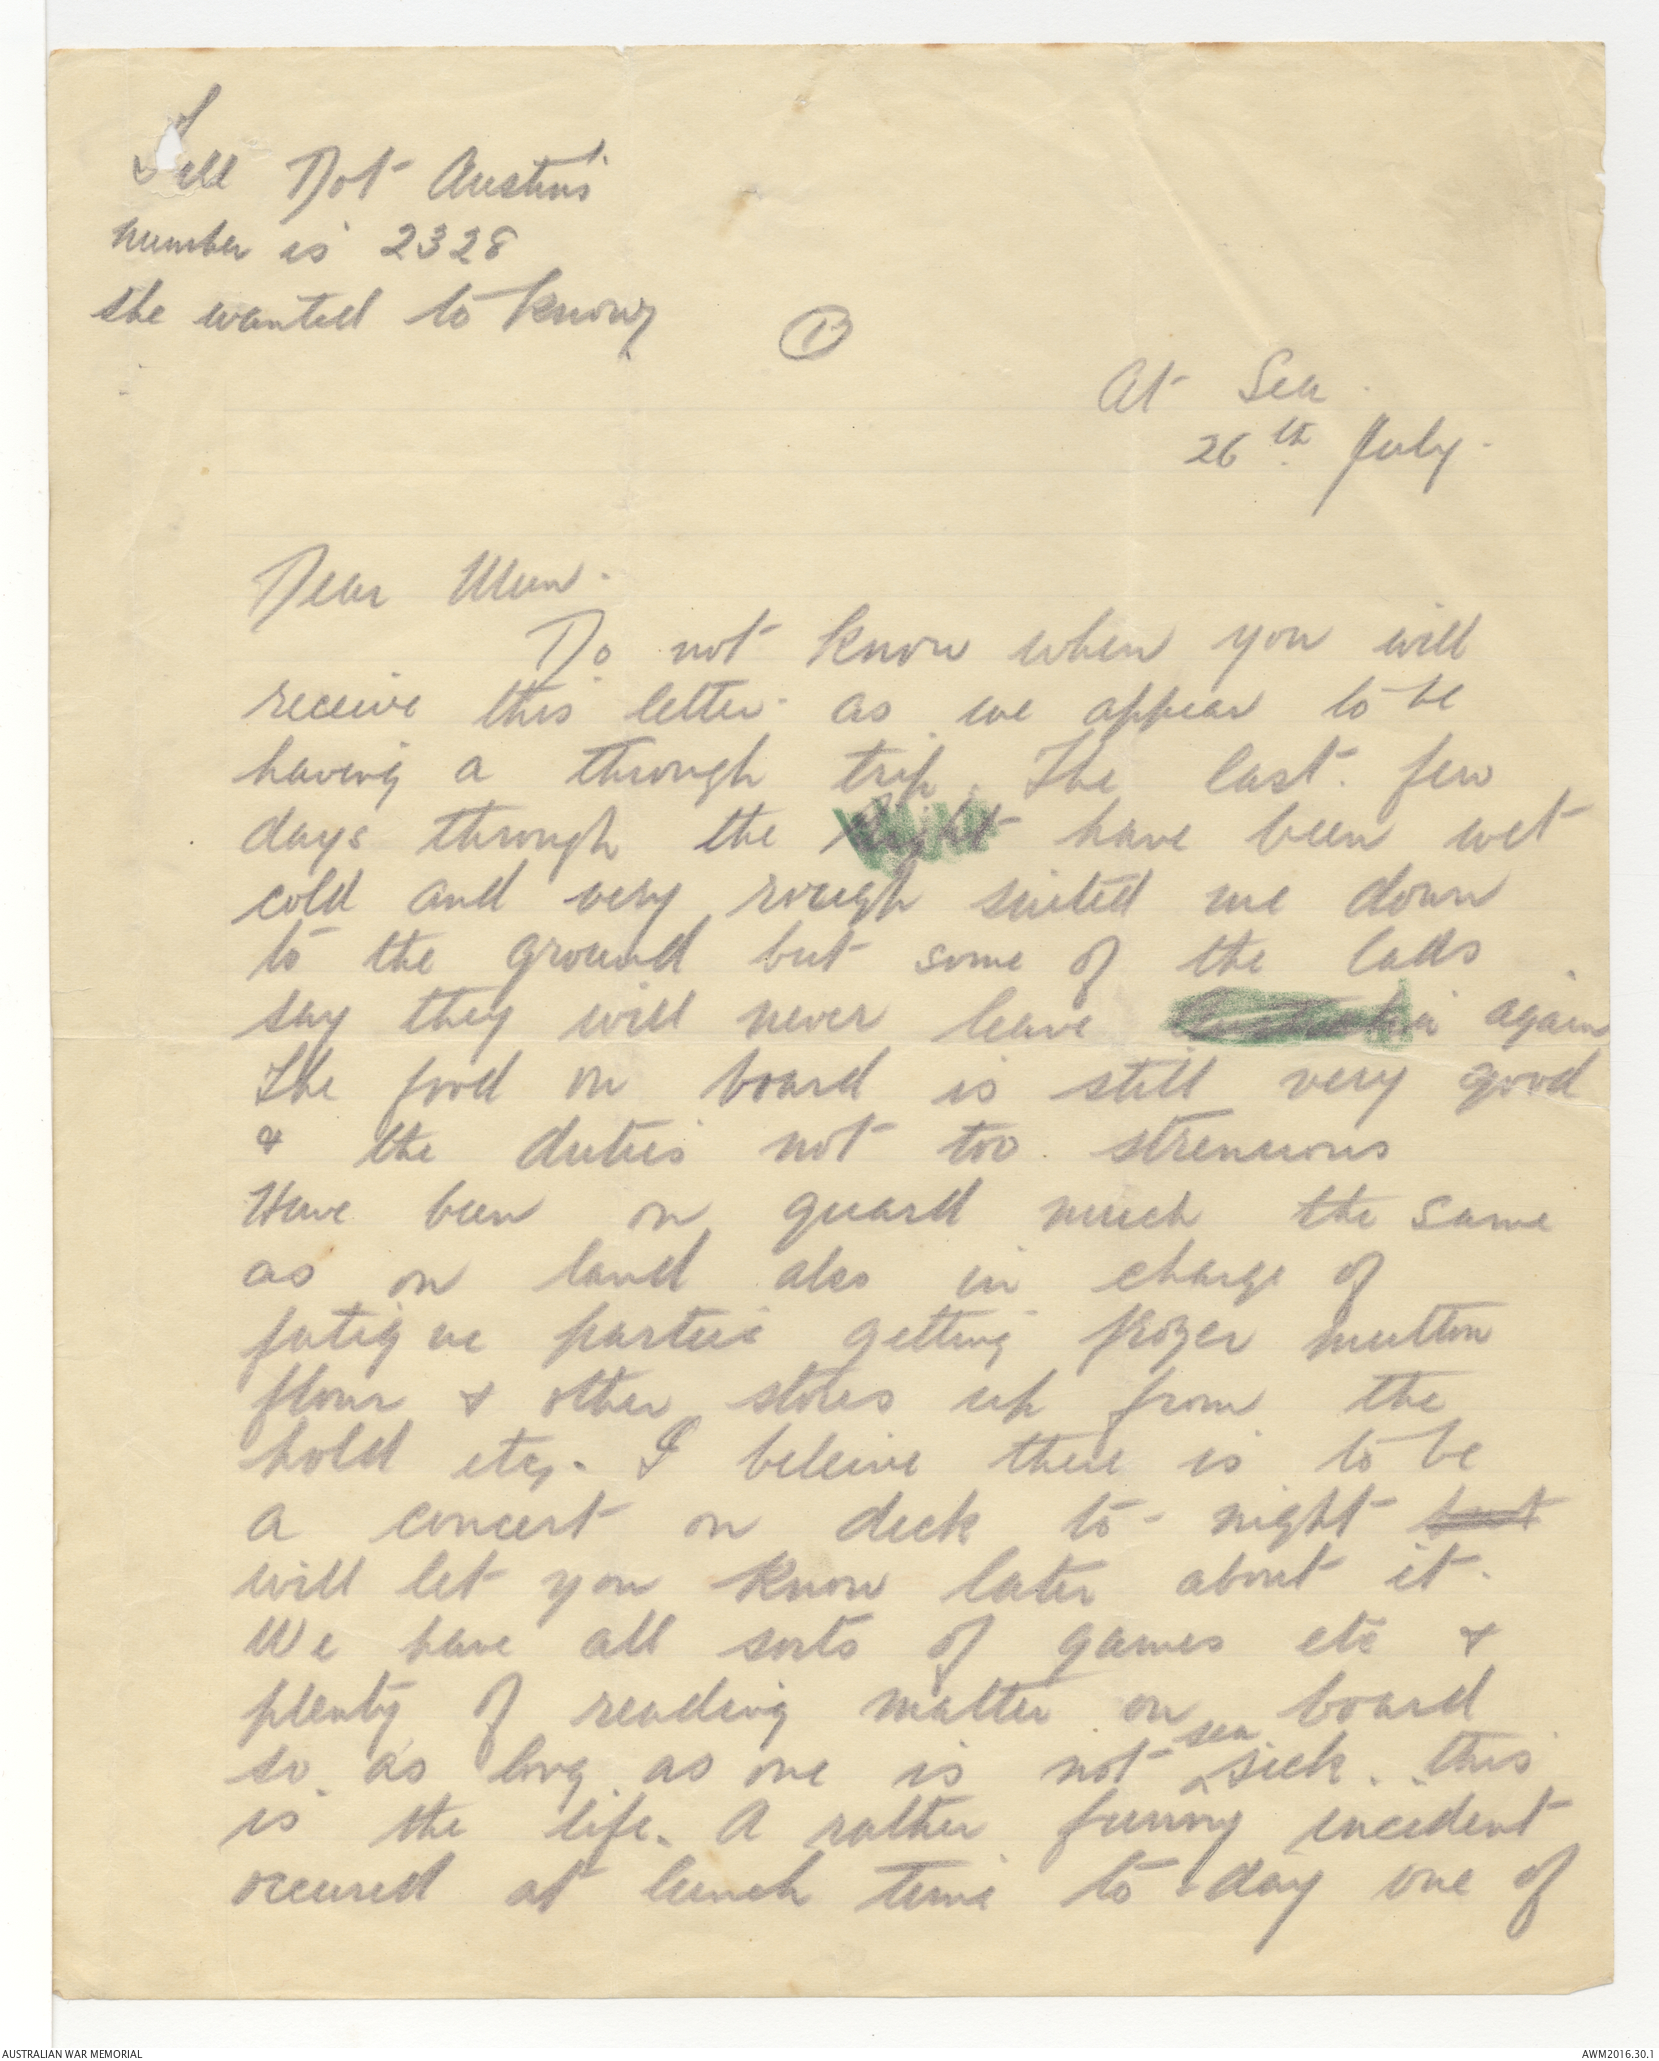 Tell Dot Austin's
number is 2328
she wanted to know
1
At Sea.
26th July.
Dear Mum.
Do not know when you will
receive this letter as we appear to be
having a through trip. The last few
days through the Bight have been wet
cold and very rough suited me down
to the ground but some of the lads
say they will never leave Australia again
The food on board is still very good
& the duties not too strenuous
Have been on guard much the same
as on land also in charge of
fatigue parties getting frozen mutton
flour & other stores up from the
hold etc. I beleive there is to be
a concert on deck to-night but
will let you know later about it.
We have all sorts of games etc &
plenty of reading matter on board
so as long as one is not sea sick this
is the life. A rather funny incident
occured at lunch time to-day one of
AUSTRALIAN WAR MEMORIAL
AWM2016.30.1